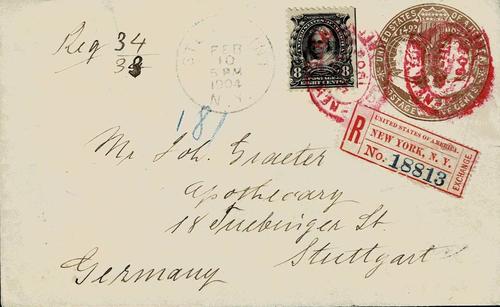 Reg 34
38
FEB
10
5 PM
1904
N.Y.
8 8
POSTAGE
EIGHT CENTS
UNITED STATES OF AMERICA
181
R
UNITED STATES OF AMERICA.
NEW YORK, N. Y.
No. 18813
EXCHANGE
Mr Joh. Graeter
Apothecary
18 Tuebinger St.
Stuttgart
Germany